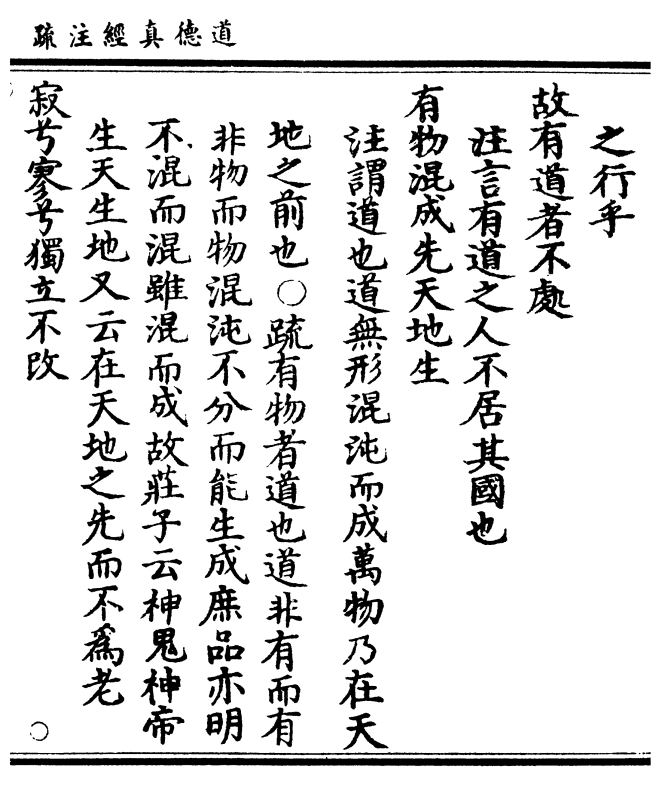 道德真經注疏
之行乎
故有道者不處
注言有道之人不居其國也
有物混成先天地生
注謂道也道無形混沌而成萬物乃在天
地之前也○疏有物者道也道非有而有
非物而物混沌不分而能生成庶品亦明
不混而混雖混而成故莊子云神鬼神帝
生天生地又云在天地之先而不爲老
寂兮寥兮獨立不改